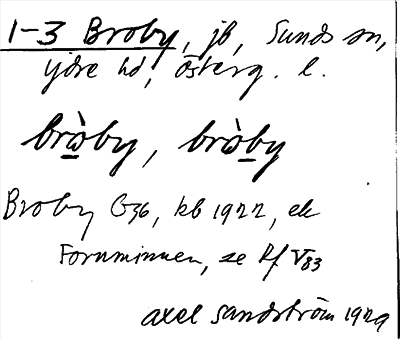 1-3 Broby, jb, Sunds sn,
Ydre hd, österg. l.
brò̲by, bròb̲y
Broby G36, kb 1922, ek
Fornminnen, se Rf V83
axel sandström 1929